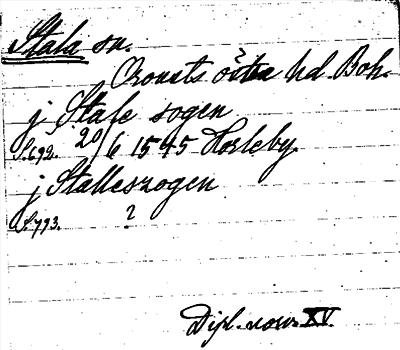 Stala sn.
Orousts östra hd. Boh.
j Stale sogen
S. 692. 20/6 1545 Horleby.
j Stalleszogen
S. 793. ?
Dipl. norv. XV.